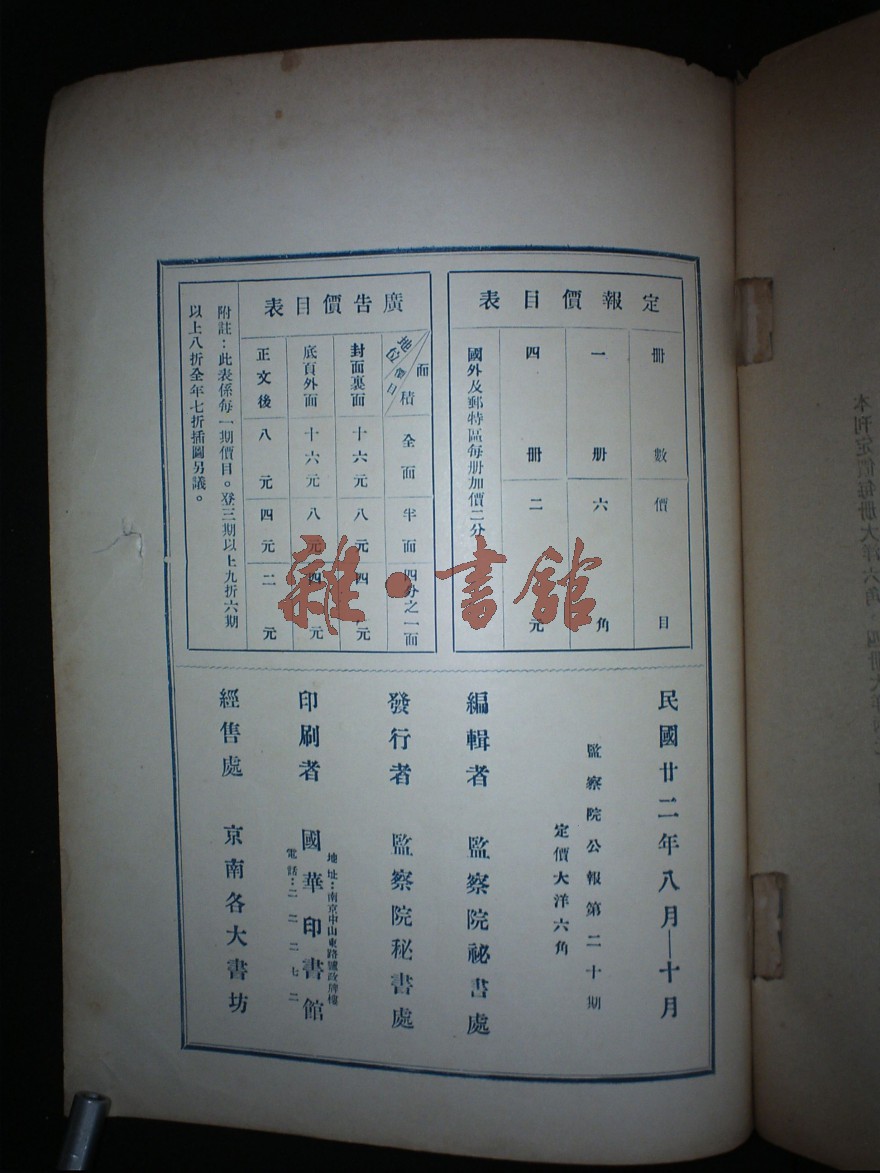 定報價目表
冊數 價目
一冊 六角
四冊 二元
國外及郵特區每册加價二分
廣告價目表
面積 全面 半面 四分之一面
封面裏面 十六元 八元 四元
底頁外面 十六元 八元 四元
正文後 八元 四元 二元
附註：此表係每一期價目。登三期以上九折六期
以上八折全年七折插圖另議。
民國廿二年八月—十月
監察院公報第二十期
定價大洋六角
編輯者 監察院祕書處
發行者 監察院秘書處
印刷者 國華印書館
地址：南京中山東路號政牌樓
電話：二二二七二
經售處 京南各大書坊
雜·書館
本刊定價每册大洋六角